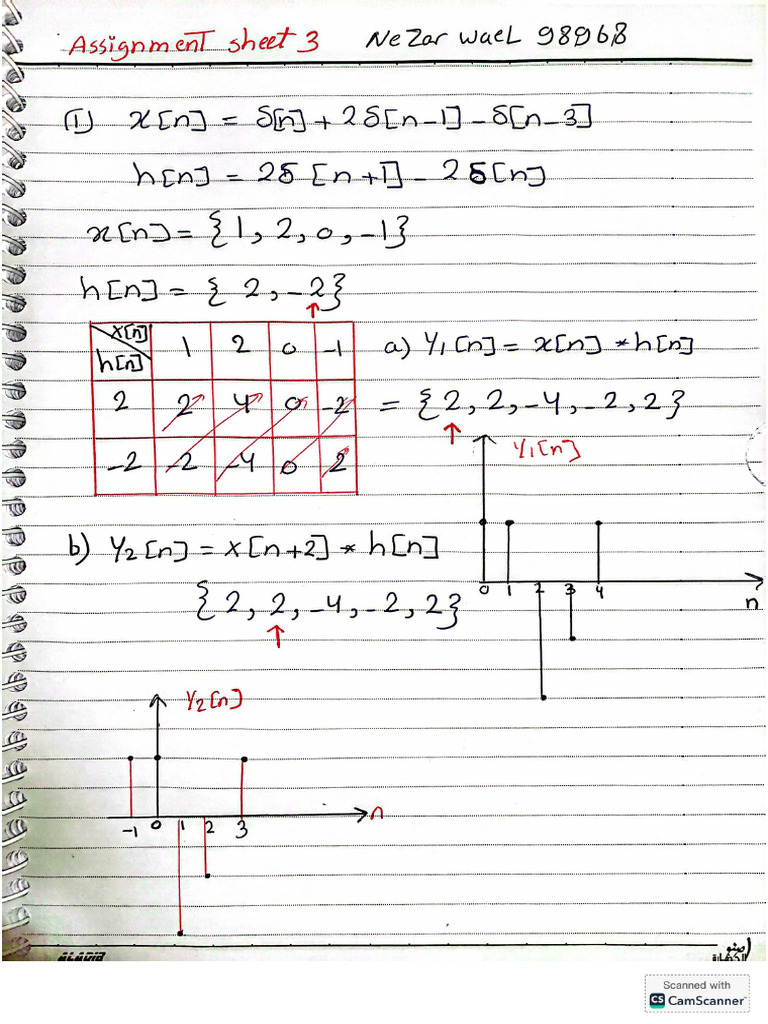 Assignment sheet 3 Nezar wael 98968
(1) x[n] = δ[n] + 2δ[n-1] - δ[n-3]
h[n] = 2δ [n+1] - 2δ[n]
x[n] = {1, 2, 0, -1}
h[n] = { 2, -2}
↑
x[n] 1 2 0 -1
h[n]
2 2 4 0 -2
-2 -2 -4 0 2
a) y₁[n] = x[n] * h[n]
= {2, 2, -4, -2, 2}
↑
y₁[n]
0 1 2 3 4
n
b) y₂[n] = x[n+2] * h[n]
{2, 2, -4, -2, 2}
↑
y₂[n]
-1 0 1 2 3
n
Scanned with
CS CamScanner